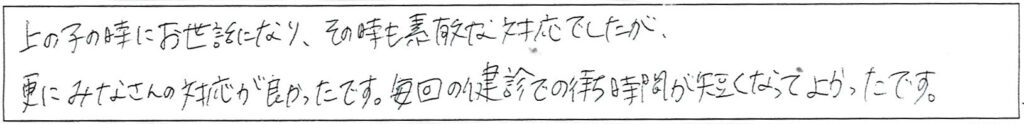 上の子の時にお世話になり、その時も素敵な対応でしたが、
更にみなさんの対応が良かったです。毎回の健診での待ち時間が短くなってよかったです。